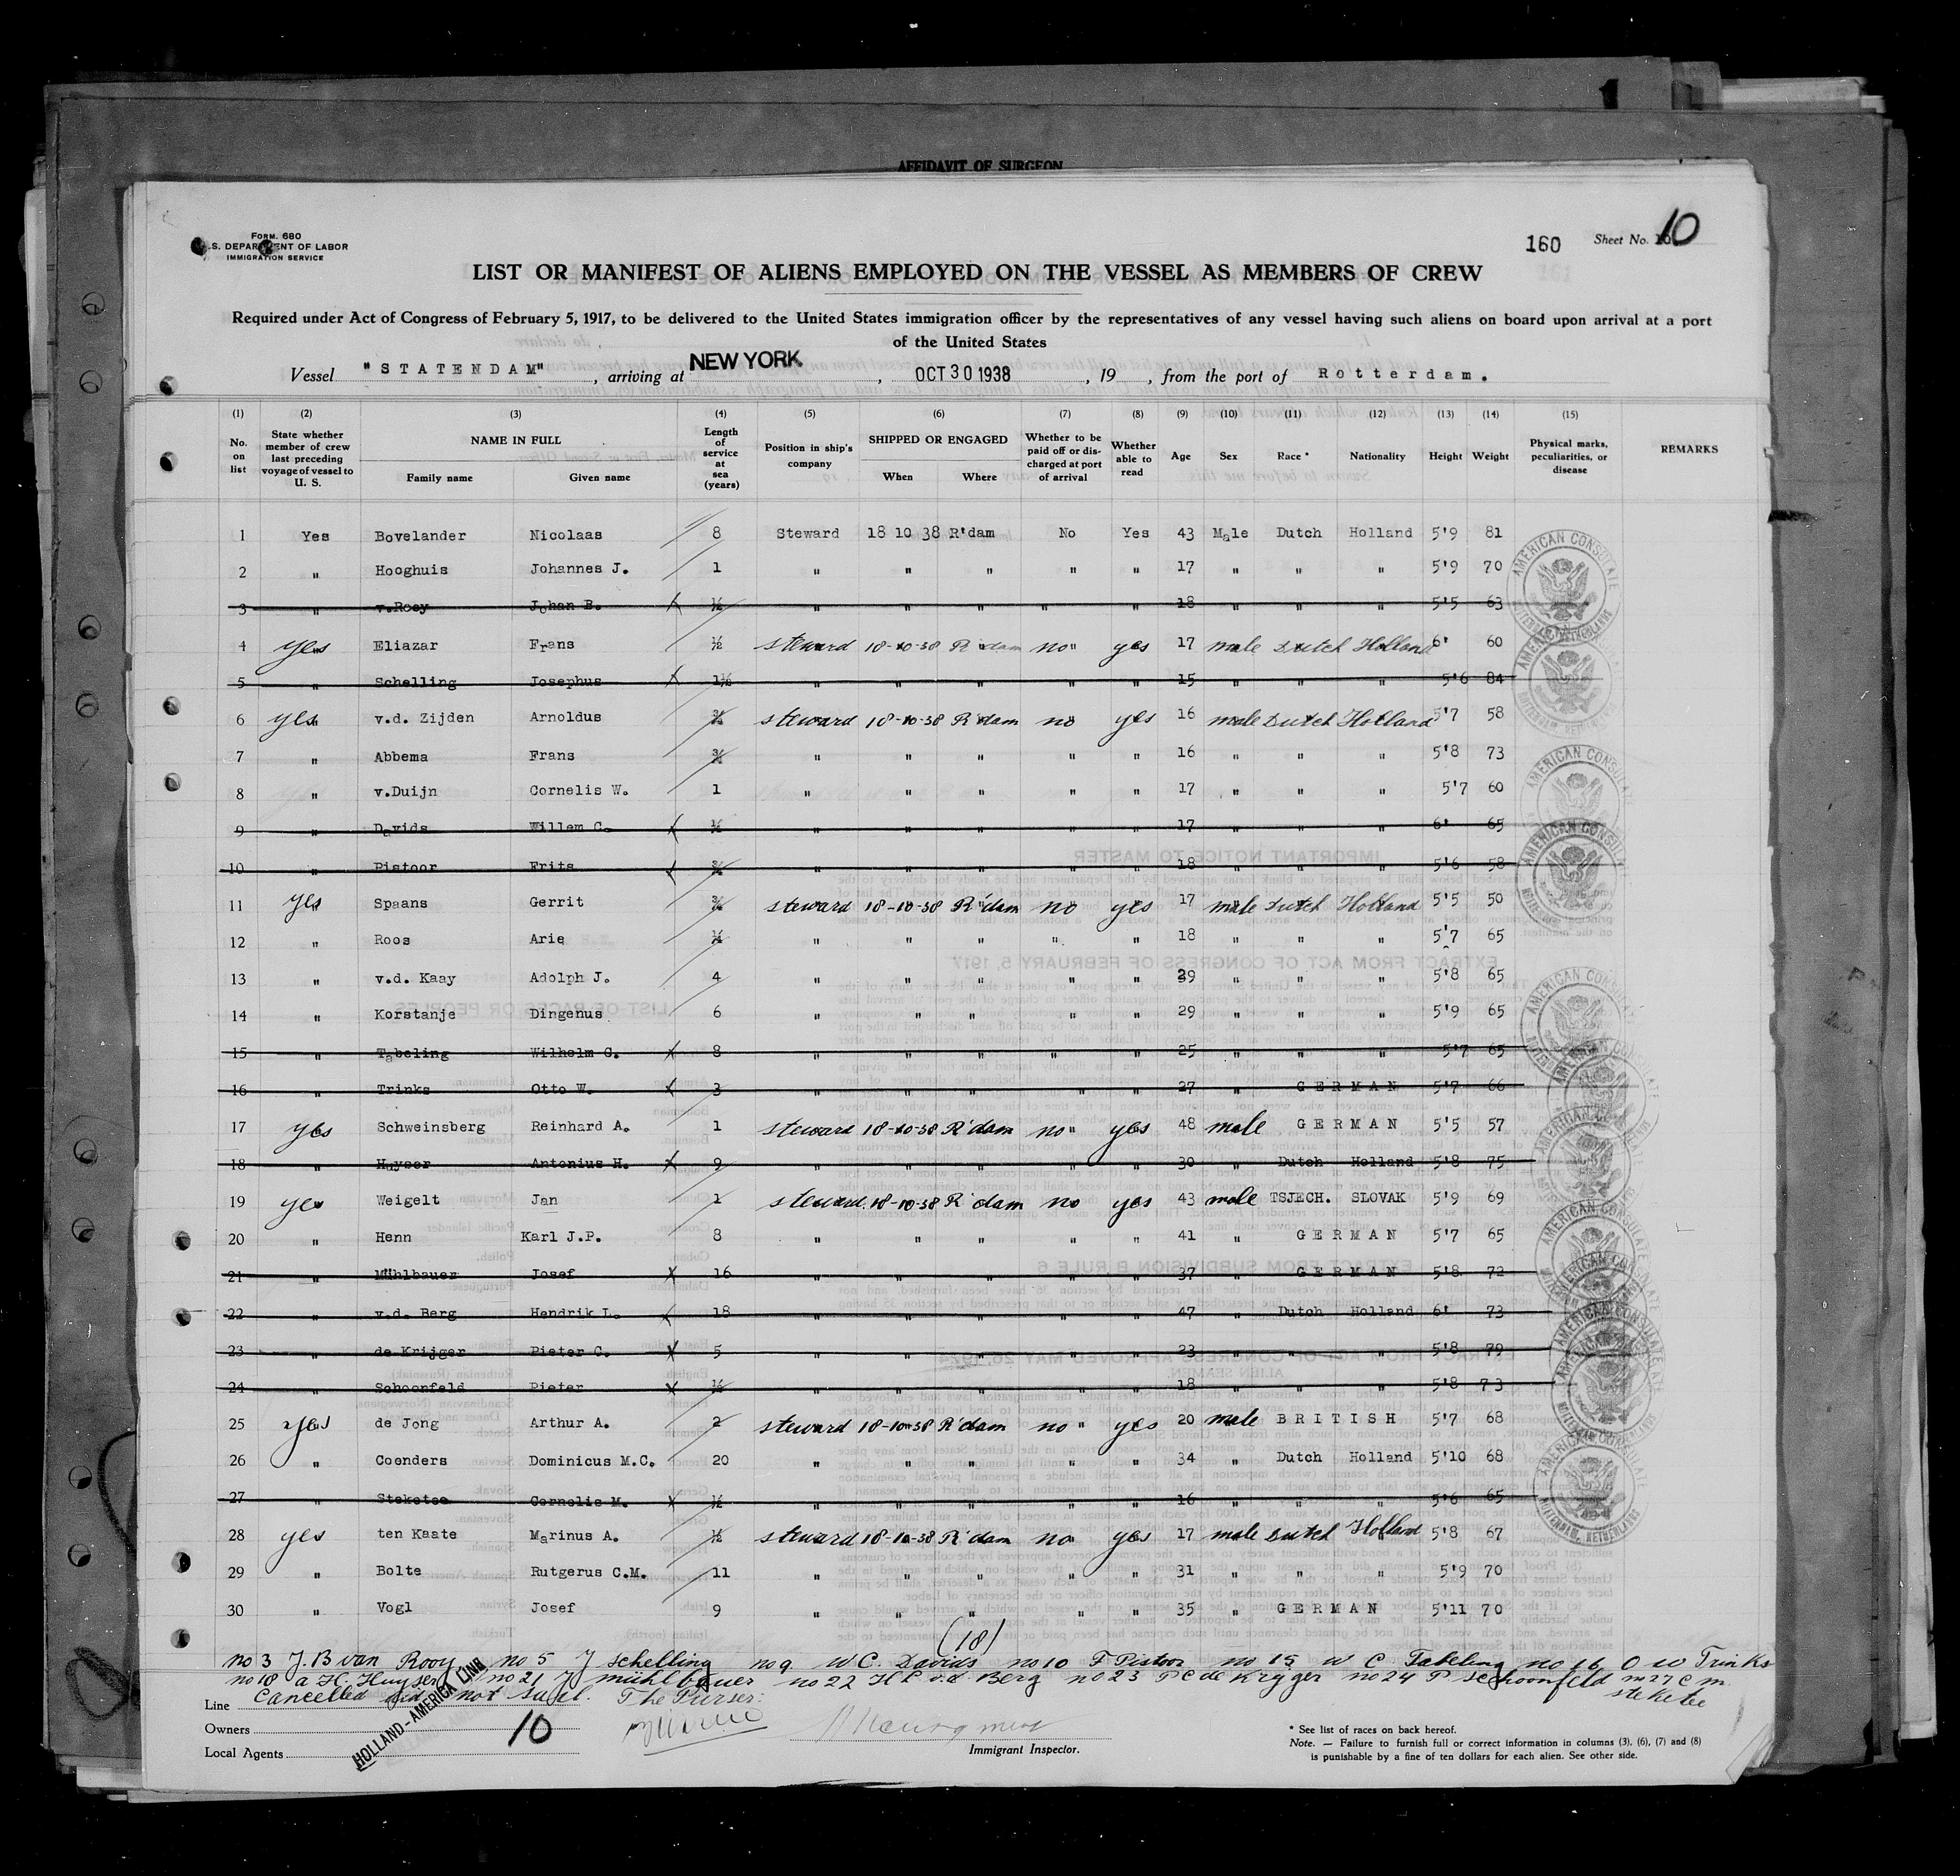 AFFIDAVIT OF SURGEON
FORM. 680
U.S. DEPARTMENT OF LABOR
IMMIGRATION SERVICE
160 Sheet No. 10
LIST OR MANIFEST OF ALIENS EMPLOYED ON THE VESSEL AS MEMBERS OF CREW
Required under Act of Congress of February 5, 1917, to be delivered to the United States immigration officer by the representatives of any vessel having such aliens on board upon arrival at a port
of the United States
Vessel "STATENDAM", arriving at NEW YORK, OCT 30 1938, 19 , from the port of Rotterdam.
(1) (2) (3) (4) (5) (6) (7) (8) (9) (10) (11) (12) (13) (14) (15)
No. on list State whether member of crew last preceding voyage of vessel to U. S. NAME IN FULL Family name Given name Length of service at sea (years) Position in ship's company SHIPPED OR ENGAGED When Where Whether to be paid off or discharged at port of arrival Whether able to read Age Sex Race * Nationality Height Weight Physical marks, peculiarities, or disease REMARKS
1 Yes Bovelander Nicolaas 8 Steward 18 10 38 R'dam No Yes 43 Male Dutch Holland 5'9 81
2 " Hooghuis Johannes J. 1 " " " " " 17 " " " 5'9 70
3 " v.Rooy Johan B. ½ " " " " " 18 " " " 5'5 63
4 yes Eliazar Frans ½ steward 18-10-38 R'dam no yes 17 male Dutch Holland 6' 60
5 " Schelling Josephus 1½ " " " " " 15 " " " 5'6 84
6 yes v.d. Zijden Arnoldus ¾ steward 18-10-38 R'dam no yes 16 male Dutch Holland 5'7 58
7 " Abbema Frans ¾ " " " " " 16 " " " 5'8 73
8 " v.Duijn Cornelis W. 1 " " " " " 17 " " " 5'7 60
9 " Davids Willem C. ½ " " " " " 17 " " " 6' 65
10 " Pistoor Frits ¾ " " " " " 18 " " " 5'6 58
11 yes Spaans Gerrit ¾ steward 18-10-38 R'dam no yes 17 male Dutch Holland 5'5 50
12 " Roos Arie " " " " " 18 " " " 5'7 65
13 " v.d. Kaay Adolph J. 4 " " " " " 29 " " " 5'8 65
14 " Korstanje Dingenus 6 " " " " " 29 " " " 5'9 65
15 " Tabeling Wilhelm C. 8 " " " " " 25 " " " 5'7 65
16 " Trinks Otto W. 3 " " " " " 27 " GERMAN 5'7 66
17 yes Schweinsberg Reinhard A. 1 steward 18-10-38 R'dam no yes 48 male GERMAN 5'5 57
18 " Huyser Antonius H. 9 " " " " " 30 " Dutch Holland 5'8 75
19 yes Weigelt Jan 1 steward 18-10-38 R'dam no yes 43 male TSJECH. SLOVAK 5'9 69
20 " Henn Karl J.P. 8 " " " " " 41 " GERMAN 5'7 65
21 " Mühlbauer Josef 16 " " " " " 37 " GERMAN 5'8 72
22 " v.d. Berg Hendrik L. 18 " " " " " 47 " Dutch Holland 6' 73
23 " de Krijger Pieter C. 5 " " " " " 23 " " " 5'8 79
24 " Schoonfeld Pieter ½ " " " " " 18 " " " 5'8 73
25 yes de Jong Arthur A. 2 steward 18-10-38 R'dam no " yes 20 male BRITISH 5'7 68
26 " Coenders Dominicus M.C. 20 " " " " " 34 " Dutch Holland 5'10 68
27 " Steketee Cornelis M. ½ " " " " " 16 " " " 5'6 65
28 yes ten Kaate Marinus A. ½ steward 18-10-38 R'dam no yes 17 male Dutch Holland 5'8 67
29 " Bolte Rutgerus C.M. 11 " " " " " 31 " " " 5'9 70
30 " Vogl Josef 9 " " " " " 35 " GERMAN 5'11 70
(18)
no 3 J. B van Rooy no 5 J schelling no 9. W C. Davids no 10 F Pistoor no 15 W C. Tabeling no 16 O W Trinks
no 18 a H. Huyser no 21 J mühlbauer no 22 H L v.d. Berg no 23 P C de Kryger no 24 P. schoonfeld no 27 C m.
steketee
Cancelled did not sail. The Purser:
Line HOLLAND-AMERICA LINE
Owners 10
Local Agents
Immigrant Inspector.
* See list of races on back hereof.
Note. — Failure to furnish full or correct information in columns (3), (6), (7) and (8)
is punishable by a fine of ten dollars for each alien. See other side.
AMERICAN CONSULATE
ROTTERDAM, NETHERLANDS